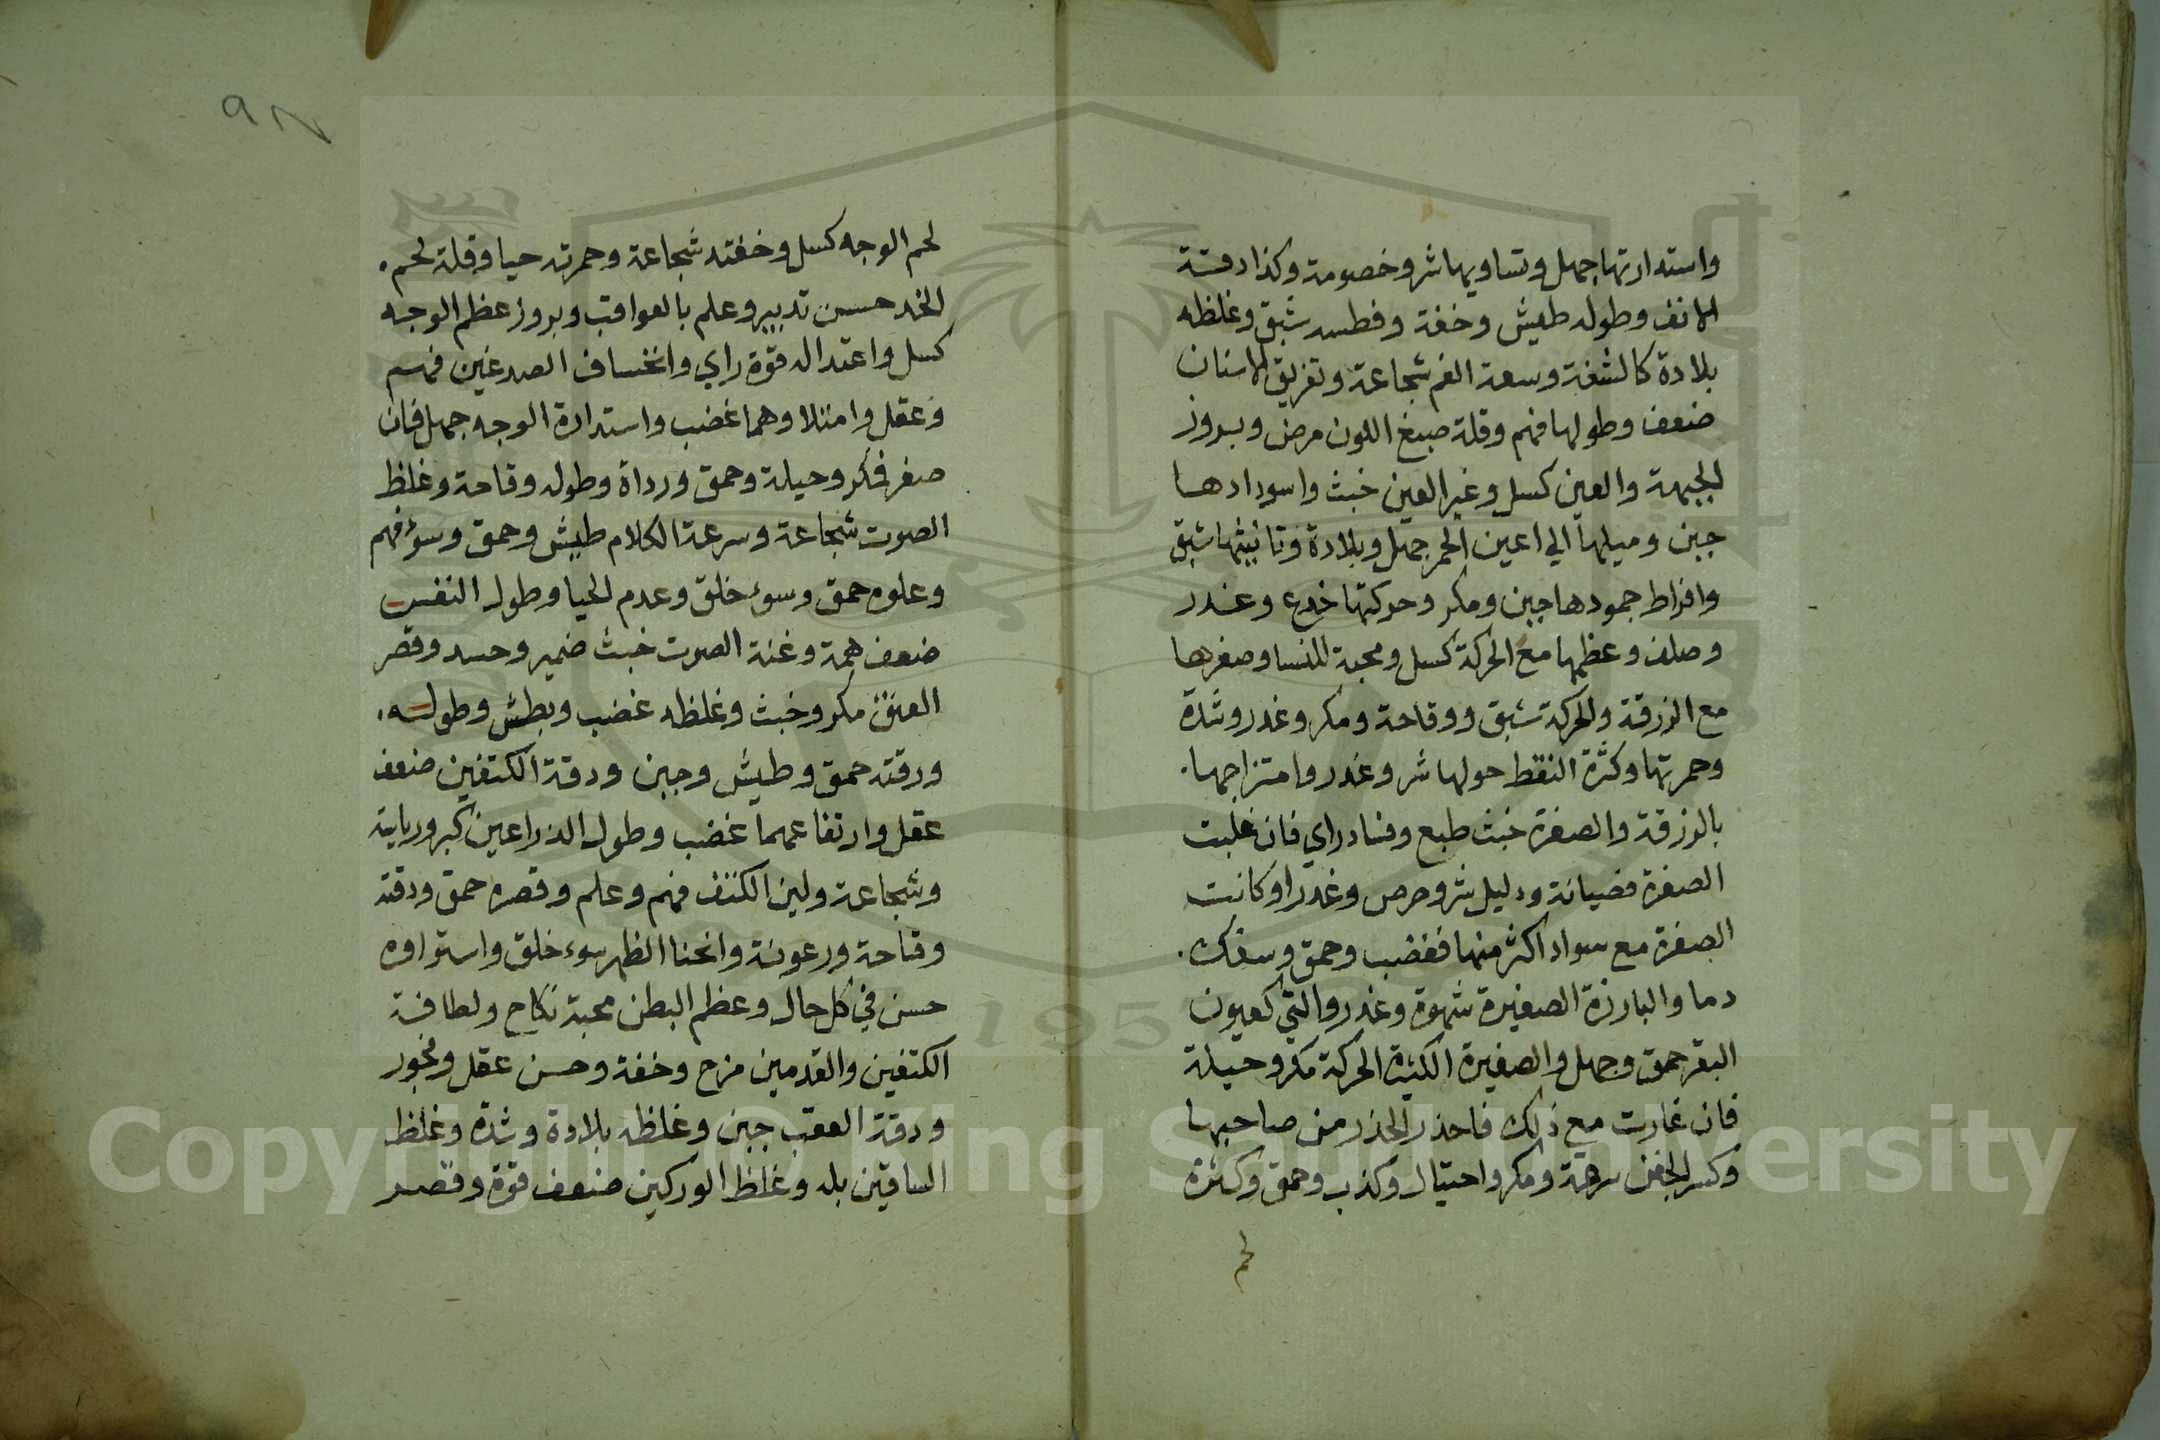 واستدارتها جهل وتساويها شر وخصومة وكذا دقة
الانف وطوله طيش وخفة وفطسه شبق وغلظه
بلادة كالشفة وسعة الفم شجاعة وتفريق الاسنان
ضعف وطولها فهم وقلة صبغ اللون مرض وبروز
الجبهة والعين كسل وغير العين خبث واسودادها
جبن وميلها الي اعين الحمر جهل وبلادة وتانيثها شبق
وافراط جمودها جبن ومكر وحركتها خدع وغدر
وصلف وعظمها مع الحركة كسل ومحبة للنسا وصغرها
مع الزرقة والحركة شبق ووقاحة ومكر وغدر وشدة
وحمرتها وكثرة النقط حولها شر وغدر وامتزاجها.
بالزرقة والصفرة خبث طبع وفساد راي فان غلبت
الصفرة فخيانة ودليل شر وحرص وغدر او كانت
الصفرة مع سواد اكثر منها فغضب وحمق وسفك.
دما والبارزة الصغيرة شهوة وغدر والتي كعيون
البقر حمق وجهل والصغيرة الكثيرة الحركة مكر وحيلة
فان غارت مع ذلك فاحذر الحذر من صاحبها
وكسر الجفن سرقة ومكر واحتيال وكذب وحمق وكثرة
لحم
٩٨
لحم الوجه كسل وخفته شجاعة وحمرته حيا وقلة لحم.
الخد حسن تدبير وعلم بالعواقب وبروز عظم الوجه
كسل واعتداله قوة راي وانخساف الصدغين فهم
وعقل وامتلاوهما غضب واستدارة الوجه جهل فان
صغر فكر وحيلة وحمق ورداة وطوله وقاحة وغلظ
الصوت شجاعة وسرعة الكلام طيش وحمق وسؤ فهم
وعلوه حمق وسوء خلق وعدم الحيا وطول النفس
ضعف همة وغنة الصوت خبث ضمير وحسد وقصر
العنق مكر وخبث وغلظه غضب وبطش وطوله.
ورقته حمق وطيش وجبن ودقة الكتفين ضعف
عقل وارتفاعهما غضب وطول الذراعين كبر ورياية
وشجاعة ولين الكتف فهم وعلم وقصره حمق ودقته
وقاحة ورعونة وانحنا الظهر سوء خلق واستواوه
حسن في كل حال وعظم البطن محبة نكاح ولطافة
الكتفين والقدمين مزح وخفة وحسن عقل وفجور
ودقة العقب جبن وغلظه بلادة وشدة وغلظ
الساقين بله وغلظ الوركين ضعف قوة وقصر
Copyright © King Saud University
195